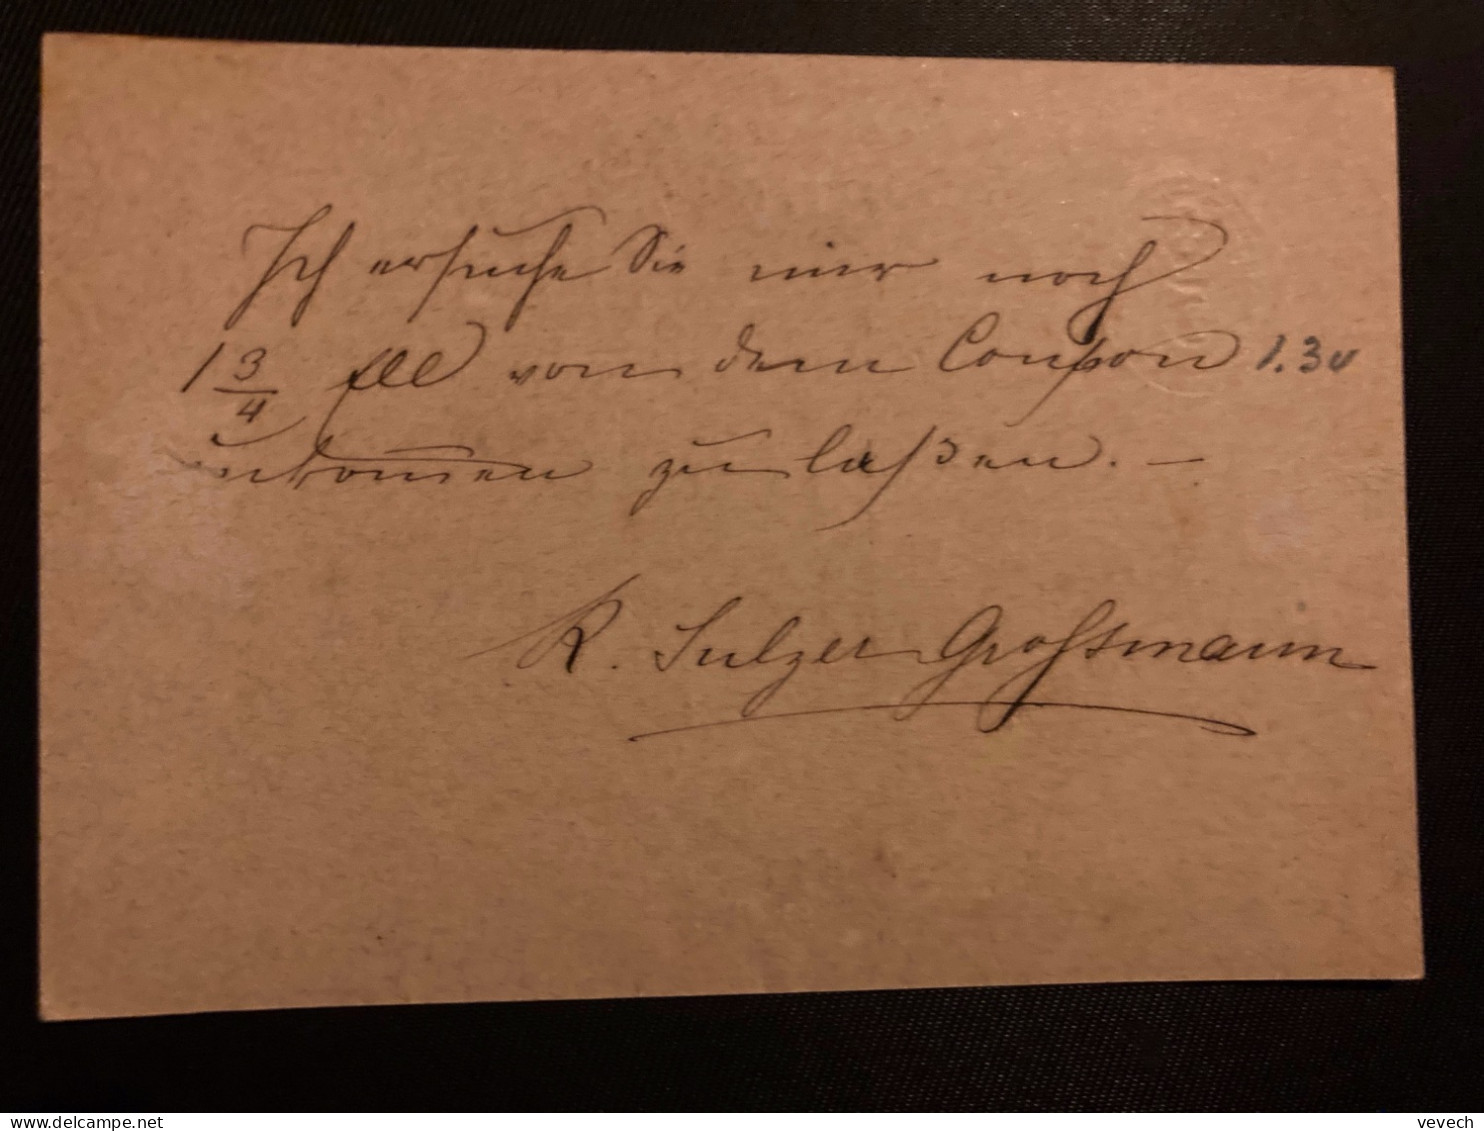 Ich ersuche Sie mir noch
1 3/4 Ell von dem Coupon 1.30
zukom̅en zu laßen. —
K. Sulzer Großmann
delcampe.net
vevech